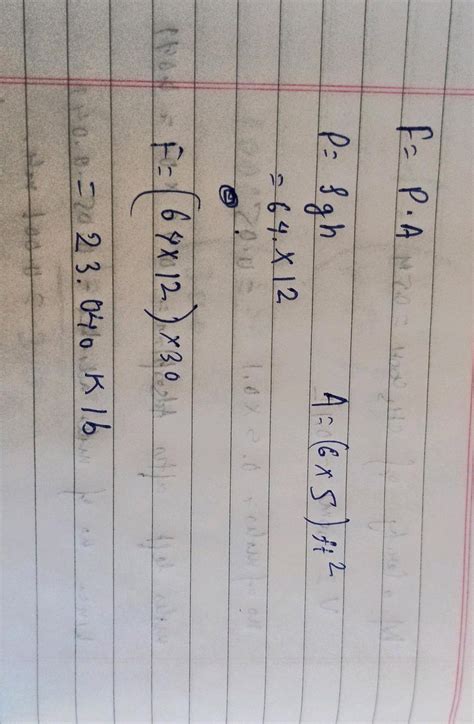 F = P.A
P = ρgh A = (6x5) ft²
= 64 x 12
F = (64x12) x 30
= 23.040 Klb